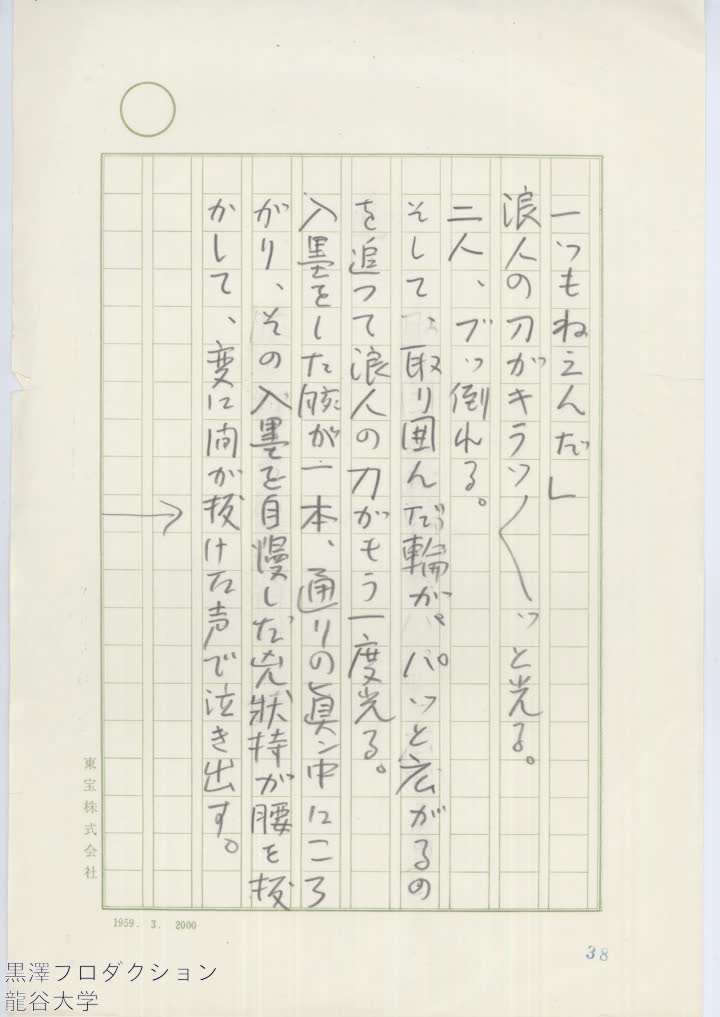 一つもねえんだ」
浪人の刀がキラッ〱ッと光る。
二人、ブッ倒れる。
そして、取り囲んだ輪が、パッと広がるの
を追つて浪人の刀がもう一度光る。
入墨をした腕が一本、通りの眞ン中にころ
がり、その入墨を自慢した兇狀持が腰を抜
かして、変に間が抜けた声で泣き出す。
東宝株式会社
1959. 3. 2000
38
黒澤プロダクション
龍谷大学